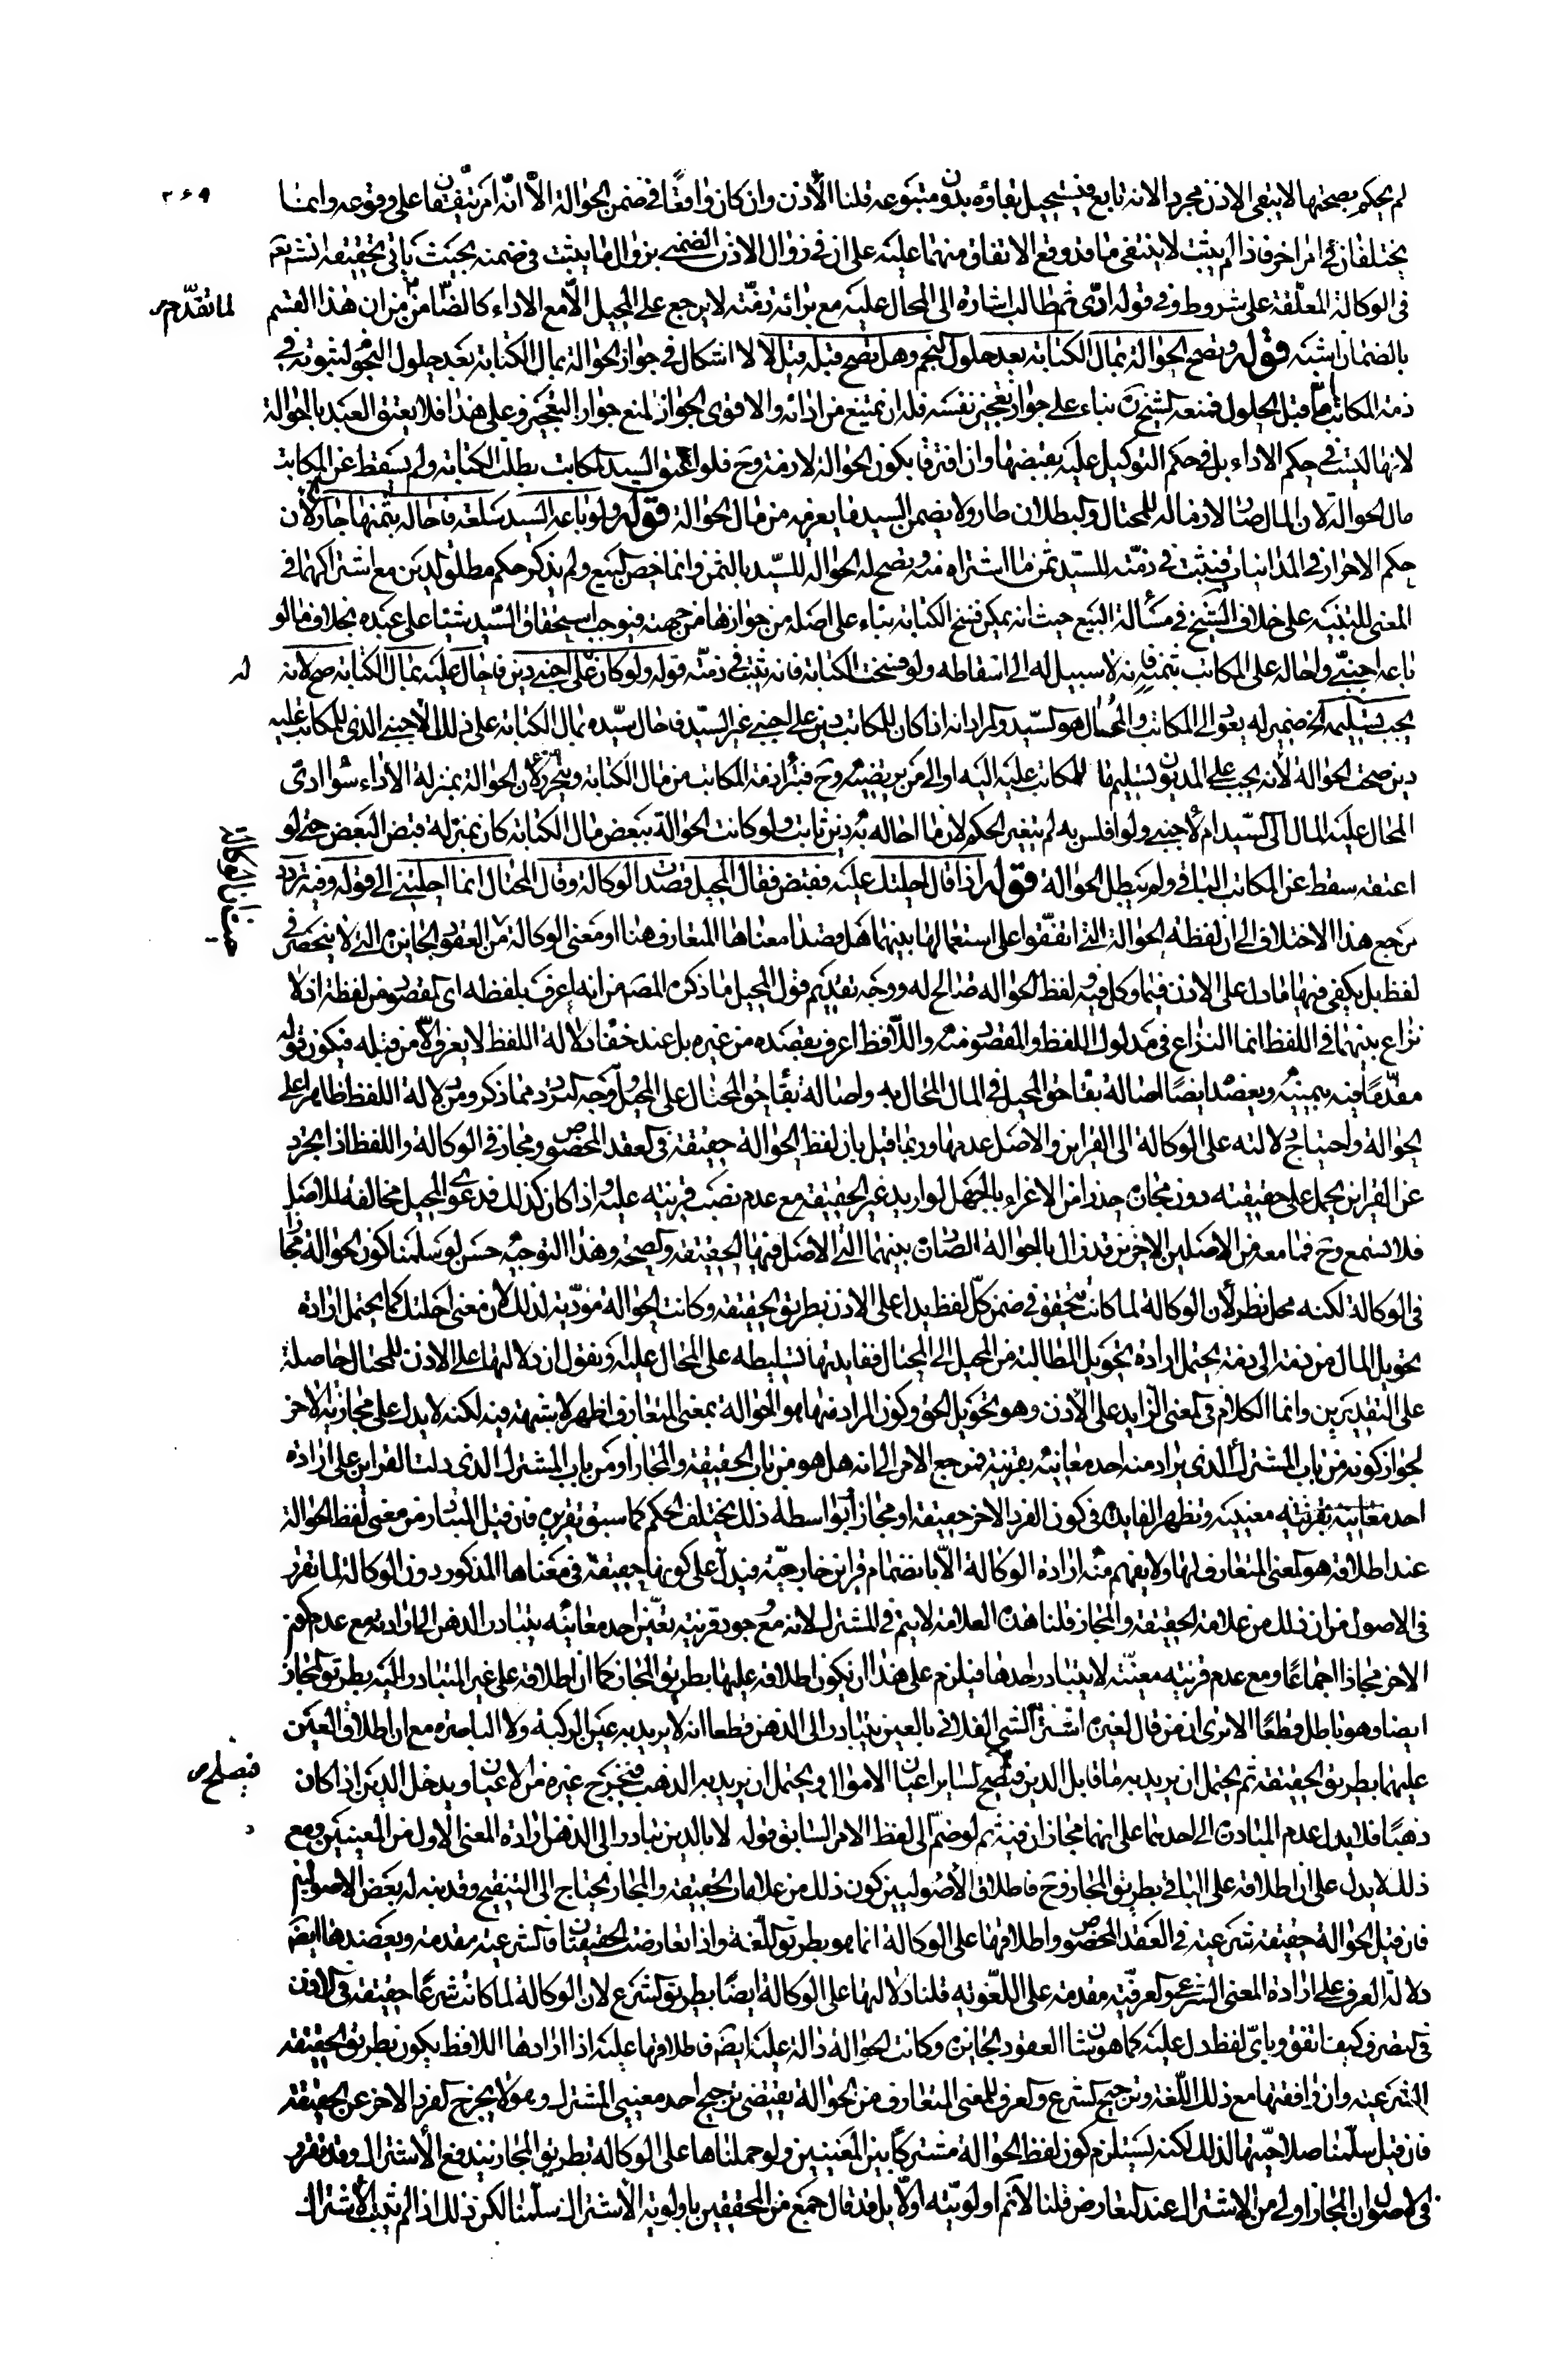 ٢٦٩
لم يحكم بصحتها لا يبقى الاذن مجردا لانه تابع فيستحيل بقاؤه بدون متبوعه قلنا الاذن وان كان واقعًا في ضمن الحوالة الاّ انّه امر يتّفقان على وقوعه وانما
يختلفان في امر اخر فاذا لم يثبت لا ينتفى ما قد وقع الاتفاق منهما عليه على ان في زوال الاذن الضمني بزوال ما يثبت في ضمنه بحيث ياتي تحقيقه انش تعم
في الوكالة المعلّقة على شروط وفي قوله ادّى ثم طالب اشارة الى المحال عليه مع برائة ذمّته لا يرجع على المحيل الاّ مع الاداء كالضّامن من ان هذا القسم
لما تقدّم ص
بالضمان اشبه قوله وتصح الحوالة بمال الكتابة بعد حلول النجم وهل تصح قبله قيل لا لا اشكال في جواز الحوالة بمال الكتابة بعد حلول النجم لثبوته في
ذمة المكاتب امّا قبل الحلول فمنعه الشيخ ره بناء على جواز تعجيز نفسه فله ان يمتنع من ادائه والاقوى الجواز لمنع جواز التعجيز وعلى هذا فلا يعتق العبد بالحوالة
لانها ليست في حكم الاداء بل في حكم التوكيل عليه بقبضها وان افترقا بكون الحوالة لازمة وح فلو اعتق السيد المكاتب بطلت الكتابة ولم يسقط عن المكاتب
مال الحوالة لان المال صار لازما له للمحتال والبطلان طار ولا يضمن السيد ما يغرمه من مال الحوالة قوله ولو باعه السيد سلعة فاحاله بثمنها جاز لان
حكم الاحرار في المداينات فيثبت في ذمّته للسيد ثمن ما اشتراه منه وتصح له الحوالة للسيّد بالثمن وانما خص البيع ولم يذكر حكم مطلق الدين مع اشتراكهما في
المعنى للتنبيه على خلاف الشيخ في مسألة البيع حيث انه يمكن فسخ الكتابة بناء على اصله من جوازها من جهته فيوجب استحقاق السيّد شيئا على عبده بخلاف ما لو
باعه اجنبي واحاله على المكاتب بثمنه فانه لا سبيل له الى اسقاطه ولو فسخت الكتابة فانه تثبت في ذمّته قوله ولو كان له على اجنبي دين فاحال عليه بمال الكتابة صح لانه
يجب تسليمه الخ ضمير له يعود الى المكاتب والمحتال هو السيّد والمراد انه اذا كان للمكاتب دين على اجنبي غير السيّد فاحال سيّده بمال الكتابة على ذلك الاجنبي الذي للمكاتب عليه
دين صحت الحوالة لانه يجب على المديون تسليم ما للمكاتب عليه اليه او الى من يرتضيه وح فتبرأ ذمة المكاتب من مال الكتابة ويتحرر لان الحوالة بمنزلة الاداء سوا ادى
المحال عليه المال الى السيّد ام لا حتى ولو افلس به لم يتغير الحكم لان ما احاله به دين ثابت ولو كانت الحوالة ببعض مال الكتابة كان بمنزلة قبض البعض حتى لو
اعتقه سقط عن المكاتب الباقي ولم تبطل الحوالة قوله اذا قال احلتك عليه فقبض فقال المحيل قصدت الوكالة وقال المحتال انما احلتني الى قوله وفيه تردد
مرجع هذا الاختلاف الى ان لفظة الحوالة التي اتفقوا على استعمالها بينهما هل قصدا معناها المتعارف هنا او معنى الوكالة من العقود الجايزة التي لا ينحصر في
حيث ان الوكالة
لفظ بل يكفي فيها ما دل على الاذن فيما وكل فيه ولفظ الحوالة صالح له ووجه تقديم قول المحيل ما ذكره المصم من انه اعرف بلفظه اي المقصود من لفظه اذ لا
نزاع بينهما في اللفظ انما النزاع في مدلول اللفظ والمقصود منه واللافظ اعرف بقصده من غيره بل عند خفاء دلالة اللفظ لا يعرف الاّ من قبله فيكون قوله
مقدّمًا فيه بيمينه ويعضده ايضًا اصالة بقاء حق المحيل في المال المحال به واصالة بقاء حق المحتال على المحيل ووجه التردد مما ذكر ومن دلالة اللفظ ظاهرا على
الحوالة واحتياج دلالته على الوكالة الى القراين والاصل عدمها وربما قيل بان لفظ الحوالة حقيقة في العقد المخصوص ومجاز في الوكالة واللفظ اذا تجرد
عن القراين يحمل على حقيقته دون مجازه حذرا من الاغراء بالجهل لو اريد غير الحقيقة مع عدم نصب قرينة عليه واذا كان كذلك فدعوى المحيل مخالفة للاصل
فلا تسمع وح فما معه من الاصلين الاخرين قد زال بالحوالة الصادرة بينهما التي الاصل فيها الحقيقة والصحة وهذا التوجيه حسن لو سلمنا كون الحوالة مجازا
في الوكالة لكنه محل نظر لأن الوكالة لما كانت تتحقق في ضمن كلّ لفظ يدل على الاذن بطريق الحقيقة وكانت الحوالة مؤدّية لذلك لان معنى احلتك كما يحتمل ارادة
تحويل المال من ذمة الى ذمة يحتمل ارادة تحويل المطالبة من المحيل الى المحتال ففايدتها تسليطه على المحال عليه ونقول ان دلالتها على الاذن للمحتال حاصلة
على التقديرين وانما الكلام في المعنى الزايد على الاذن وهو تحويل الحق وكون المراد منها هو الحوالة بمعنى المتعارف اظهر لا شبهة فيه لكنه لا يدل على مجازية الاخر
لجواز كونه من باب المشترك الذي يراد منه احد معانيه بقرينة فمرجع الامر الى انه هل هو من باب الحقيقة والمجاز او من باب المشترك الذي دلت القراين على ارادة
احد معانيه بقرينة معينة وتظهر الفايدة في كون الفرد الاخر حقيقة او مجازا بواسطة ذلك يختلف الحكم كما سبق تقريره فان قيل المتبادر من معنى لفظ الحوالة
عند اطلاقه هو المعنى المتعارف لها ولا يفهم منه ارادة الوكالة الاّ بانضمام قراين خارجيّة فيدلّ على كونها حقيقة في معناها المذكور دون الوكالة لما تقرر
في الاصول من ان ذلك من علامة الحقيقة والمجاز قلنا هذه العلامة لا يتم في المشترك لانه مع وجود قرينة تعيّن احد معانيه يتبادر الذهن الى ارادته مع عدم كون
الاخر مجازا اجماعًا ومع عدم قرينة معيّنة لا يتبادر احدها فيلزم على هذا ان يكون اطلاقه عليها بطريق المجاز كما ان اطلاقه على غير المتبادر اليه بطريق المجاز
ايضا وهو باطل قطعًا الا ترى ان من قال لغيره اشتر الشي الفلاني بالعين يتبادر الى الذهن قطعا انه لا يريد به عين الركبة ولا الباصرة مع ان اطلاق العين
عليهما بطريق الحقيقة ثم يحتمل ان يريد به ما قابل الدين فيصلح لساير اعيان الاموال ويحتمل ان يريد به الذهب فيخرج غيره من الاعيان ويدخل الدين اذا كان
فيصلح ص
ذهبًا فلا يدل عدم المبادرة الى احدهما على انهما مجازان فيه ثم لو ضمّ الى لفظ الامر السابق قوله لا بالدين تبادر الى الذهن ارادة المعنى الاول من المعنيين ومع
ذلك لا يدل على ان اطلاقه على الباقي بطريق المجاز وح فاطلاق الأصوليين كون ذلك من علامات الحقيقة والمجاز يحتاج الى التنقيح وقد نبه له بعض الاصوليين
فان قيل الحوالة حقيقة شرعية في العقد المخصوص واطلاقها على الوكالة انما هو بطريق اللّغة واذا تعارضت الحقيقتان فالشرعية مقدمة ويعضدها ايضم
دلالة العرف على ارادة المعنى الشرعي والعرفيّة مقدمة على اللّغوية قلنا دلالتها على الوكالة ايضًا بطريق الشرع لان الوكالة لما كانت شرعًا حقيقة في الاذن
في التصرف كيف اتفق وباىّ لفظ دل عليه كما هو شان العقود الجايزة وكانت الحوالة دالة عليه ايضم فاطلاقها عليه اذا ارادها اللافظ يكون بطريق الحقيقة
الشرعية وان وافقتها مع ذلك اللّغة وترجيح الشرع والعرف للمعنى المتعارف من الحوالة يقتضى ترجيح احد معنيي المشترك وهو لا يخرج الفرد الاخر عن الحقيقة
فان قيل سلّمنا صلاحيّتها لذلك لكنه يستلزم كون لفظ الحوالة مشتركًا بين المعنيين ولو حملناها على الوكالة بطريق المجاز يندفع الأشتراك وقد تقرر
في الاصول ان المجاز اولى من الاشتراك عند التعارض قلنا لا نم اولويّته اولاّ بل قد قال جمع من المحققين باولوية الاشتراك سلّمنا لكن ذلك اذا لم يثبت الأشتراك